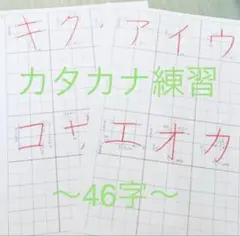 キク アイウ
カタカナ練習
コサ エオカ
〜46字〜